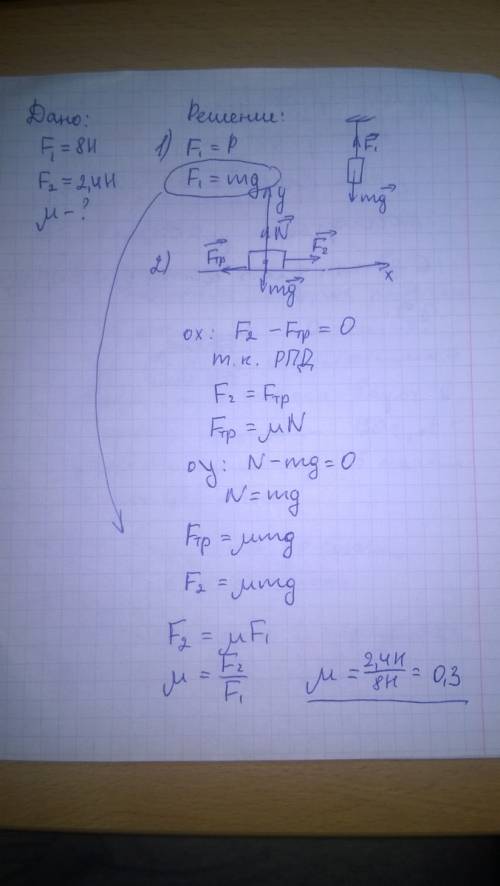 Дано:
F₁ = 8Н
F₂ = 2,4Н
μ - ?
Решение:
1) F₁ = P
F₁ = mg
F₁
mg
2)
y
N
Fтр
F₂
mg
x
ох: F₂ - Fтр = 0
т.к. РПД
F₂ = Fтр
Fтр = μN
оу: N - mg = 0
N = mg
Fтр = μmg
F₂ = μmg
F₂ = μF₁
μ = F₂/F₁
μ = 2,4Н/8Н = 0,3